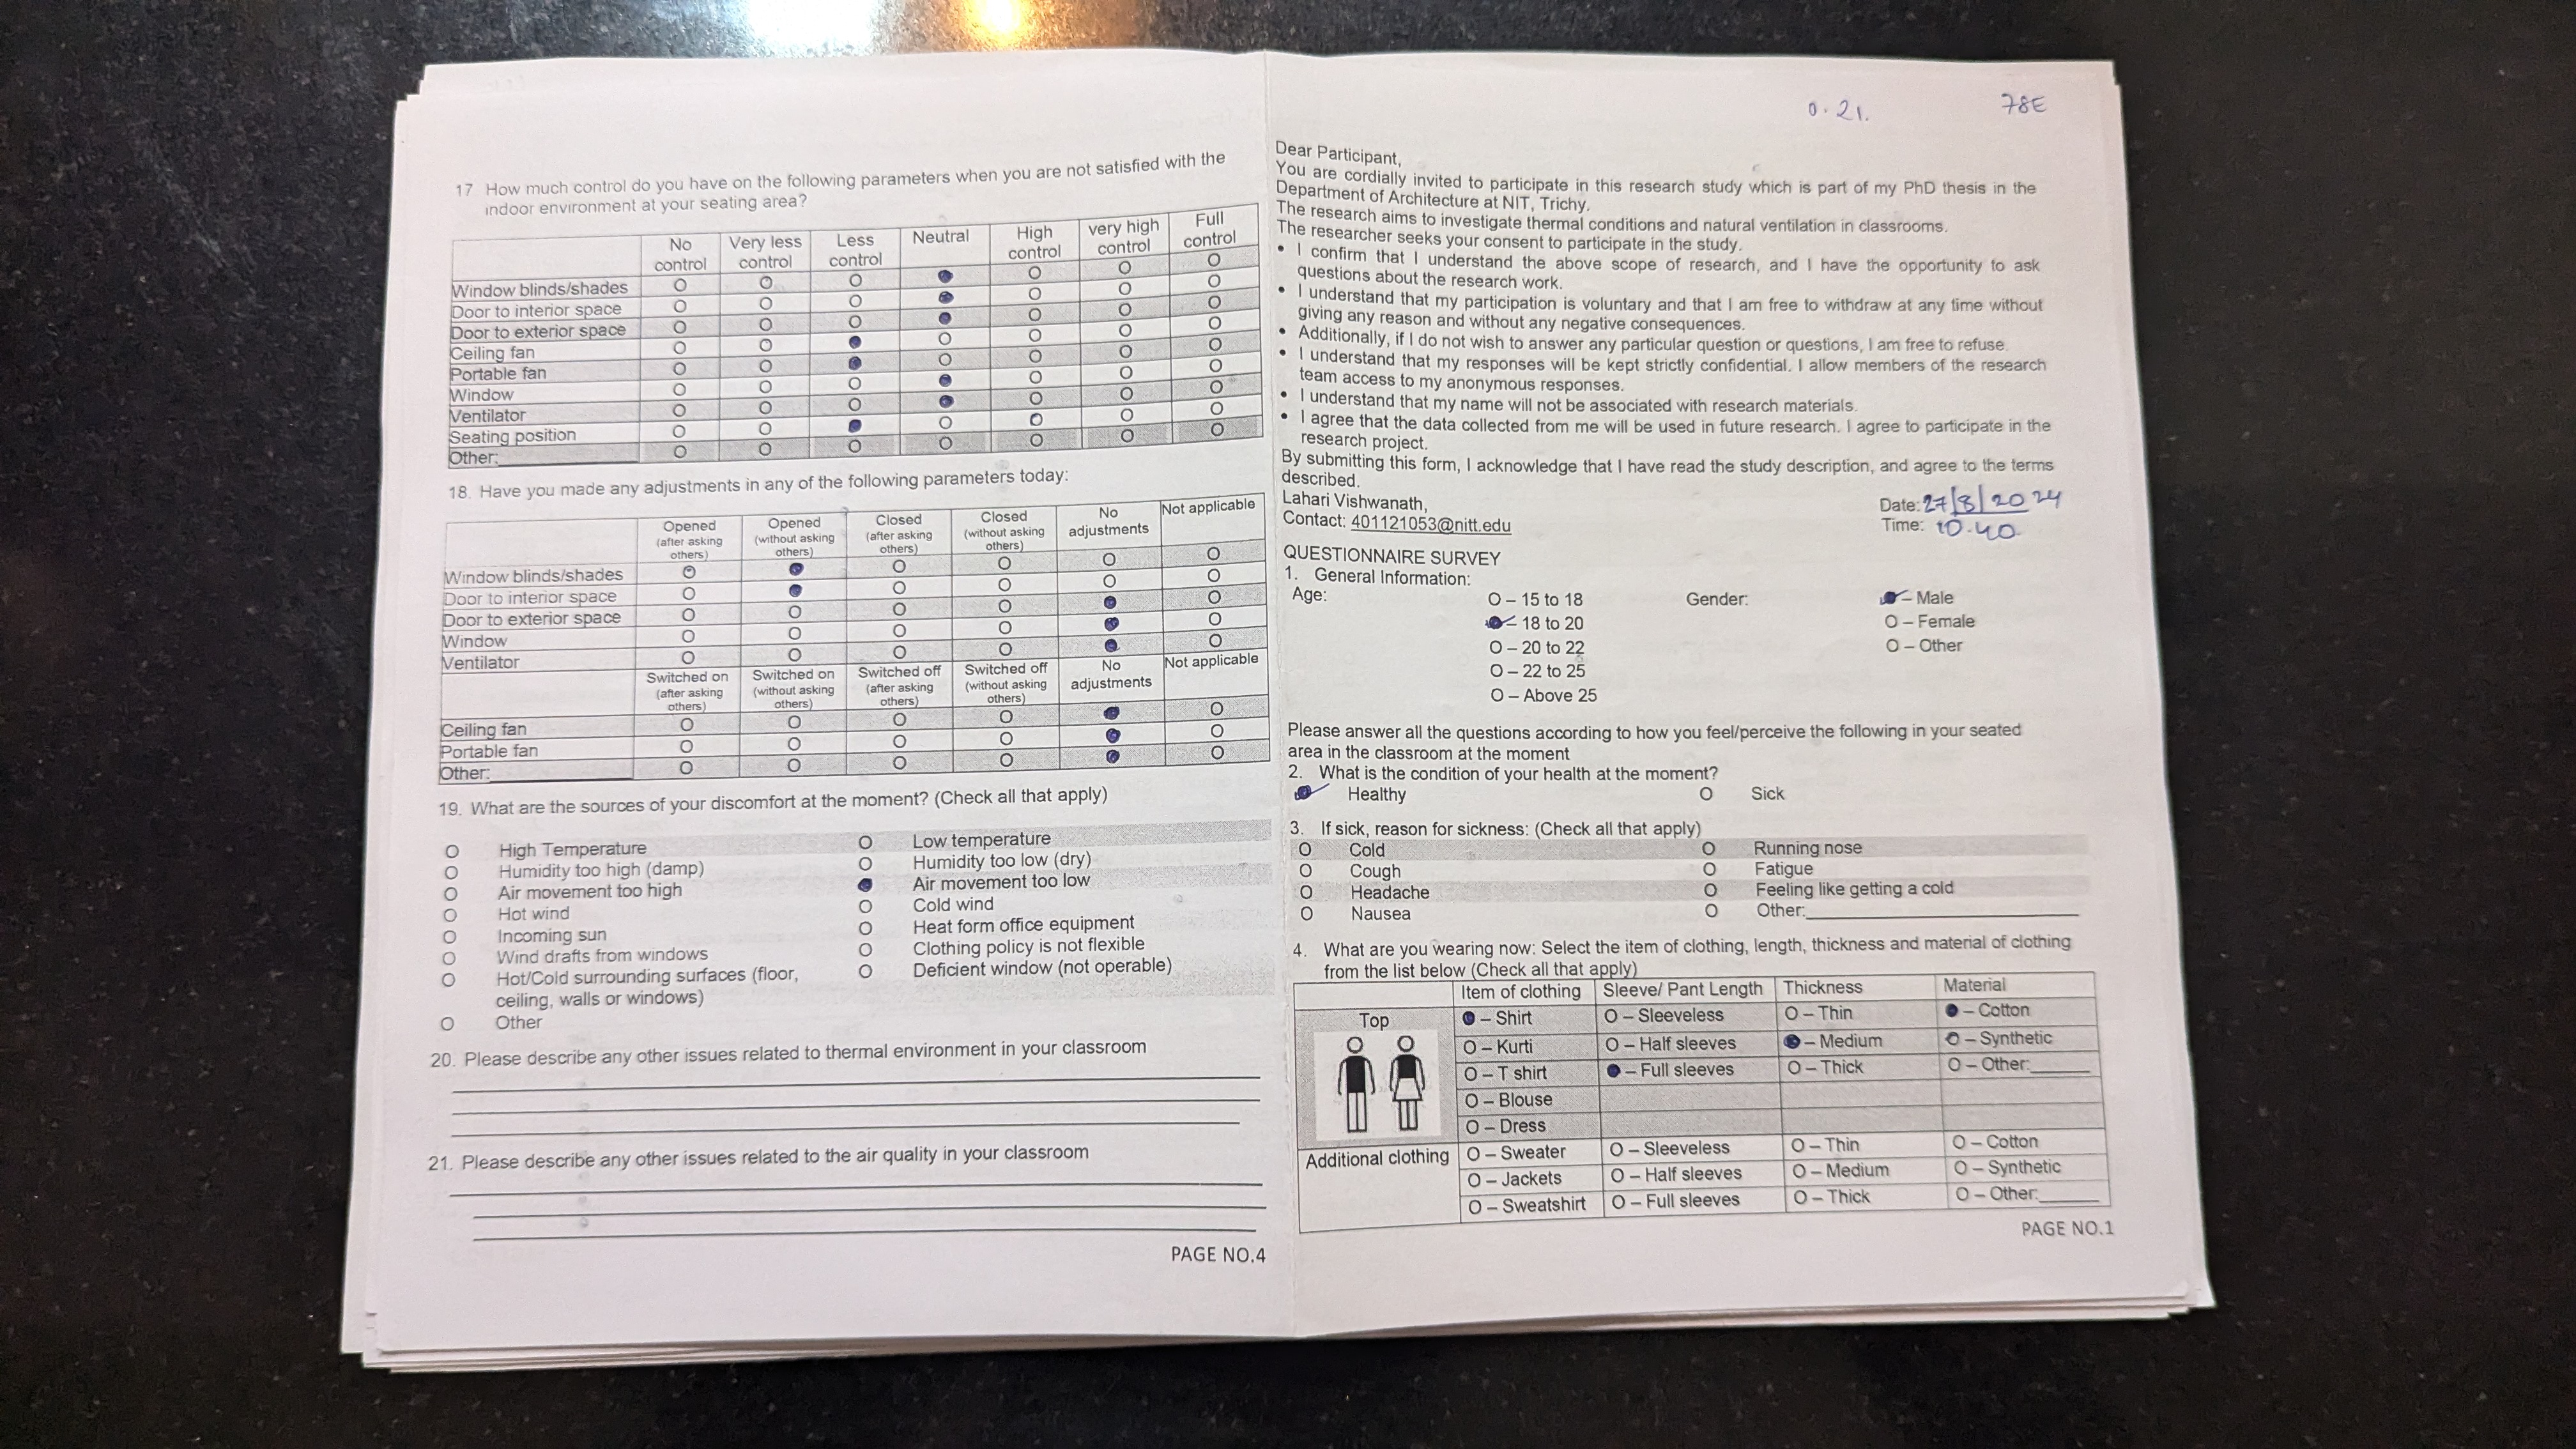 17 How much control do you have on the following parameters when you are not satisfied with the
indoor environment at your seating area?
No control Very less control Less control Neutral High control very high control Full control
Window blinds/shades O O O ● O O O
Door to interior space O O O ● O O O
Door to exterior space O O O ● O O O
Ceiling fan O O ● O O O O
Portable fan O O ● O O O O
Window O O O ● O O O
Ventilator O O O ● O O O
Seating position O O ● O O O O
Other: O O O O O O O
18. Have you made any adjustments in any of the following parameters today:
Opened (after asking others) Opened (without asking others) Closed (after asking others) Closed (without asking others) No adjustments Not applicable
Window blinds/shades O ● O O O O
Door to interior space O ● O O O O
Door to exterior space O O O O ● O
Window O O O O ● O
Ventilator O O O O ● O
Switched on (after asking others) Switched on (without asking others) Switched off (after asking others) Switched off (without asking others) No adjustments Not applicable
Ceiling fan O O O O ● O
Portable fan O O O O ● O
Other: O O O O ● O
19. What are the sources of your discomfort at the moment? (Check all that apply)
O High Temperature O Low temperature
O Humidity too high (damp) O Humidity too low (dry)
O Air movement too high ● Air movement too low
O Hot wind O Cold wind
O Incoming sun O Heat form office equipment
O Wind drafts from windows O Clothing policy is not flexible
O Hot/Cold surrounding surfaces (floor, O Deficient window (not operable)
ceiling, walls or windows)
O Other
20. Please describe any other issues related to thermal environment in your classroom
21. Please describe any other issues related to the air quality in your classroom
PAGE NO.4
0.21. 78E
Dear Participant,
You are cordially invited to participate in this research study which is part of my PhD thesis in the
Department of Architecture at NIT, Trichy.
The research aims to investigate thermal conditions and natural ventilation in classrooms.
The researcher seeks your consent to participate in the study.
• I confirm that I understand the above scope of research, and I have the opportunity to ask
questions about the research work.
• I understand that my participation is voluntary and that I am free to withdraw at any time without
giving any reason and without any negative consequences.
• Additionally, if I do not wish to answer any particular question or questions, I am free to refuse.
• I understand that my responses will be kept strictly confidential. I allow members of the research
team access to my anonymous responses.
• I understand that my name will not be associated with research materials.
• I agree that the data collected from me will be used in future research. I agree to participate in the
research project.
By submitting this form, I acknowledge that I have read the study description, and agree to the terms
described.
Lahari Vishwanath, Date: 27/8/2024
Contact: 401121053@nitt.edu Time: 10.40
QUESTIONNAIRE SURVEY
1. General Information:
Age: O – 15 to 18 Gender: ● – Male
● – 18 to 20 O – Female
O – 20 to 22 O – Other
O – 22 to 25
O – Above 25
Please answer all the questions according to how you feel/perceive the following in your seated
area in the classroom at the moment
2. What is the condition of your health at the moment?
● Healthy O Sick
3. If sick, reason for sickness: (Check all that apply)
O Cold O Running nose
O Cough O Fatigue
O Headache O Feeling like getting a cold
O Nausea O Other:
4. What are you wearing now: Select the item of clothing, length, thickness and material of clothing
from the list below (Check all that apply)
Item of clothing Sleeve/ Pant Length Thickness Material
Top ● – Shirt O – Sleeveless O – Thin ● – Cotton
O – Kurti O – Half sleeves ● – Medium O – Synthetic
O – T shirt ● – Full sleeves O – Thick O – Other:
O – Blouse
O – Dress
Additional clothing O – Sweater O – Sleeveless O – Thin O – Cotton
O – Jackets O – Half sleeves O – Medium O – Synthetic
O – Sweatshirt O – Full sleeves O – Thick O – Other:
PAGE NO.1